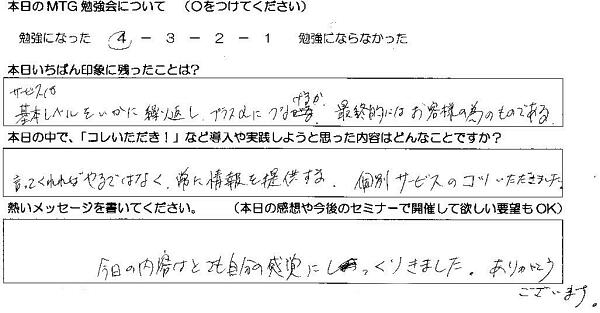 本日のMTG勉強会について （○をつけてください）
勉強になった 4 － 3 － 2 － 1 勉強にならなかった
本日いちばん印象に残ったことは？
サービスは
基本レベルをいかに繰り返し、プラスαにつなげるか。最終的にはお客様の為のものである。
本日の中で、「コレいただき！」など導入や実践しようと思った内容はどんなことですか？
言ってくれればやるではなく、常に情報を提供する。個別サービスのコツいただきました。
熱いメッセージを書いてください。 （本日の感想や今後のセミナーで開催して欲しい要望もOK）
今日の内容はとても自分の感覚にしっくりきました。ありがとう
ございます。